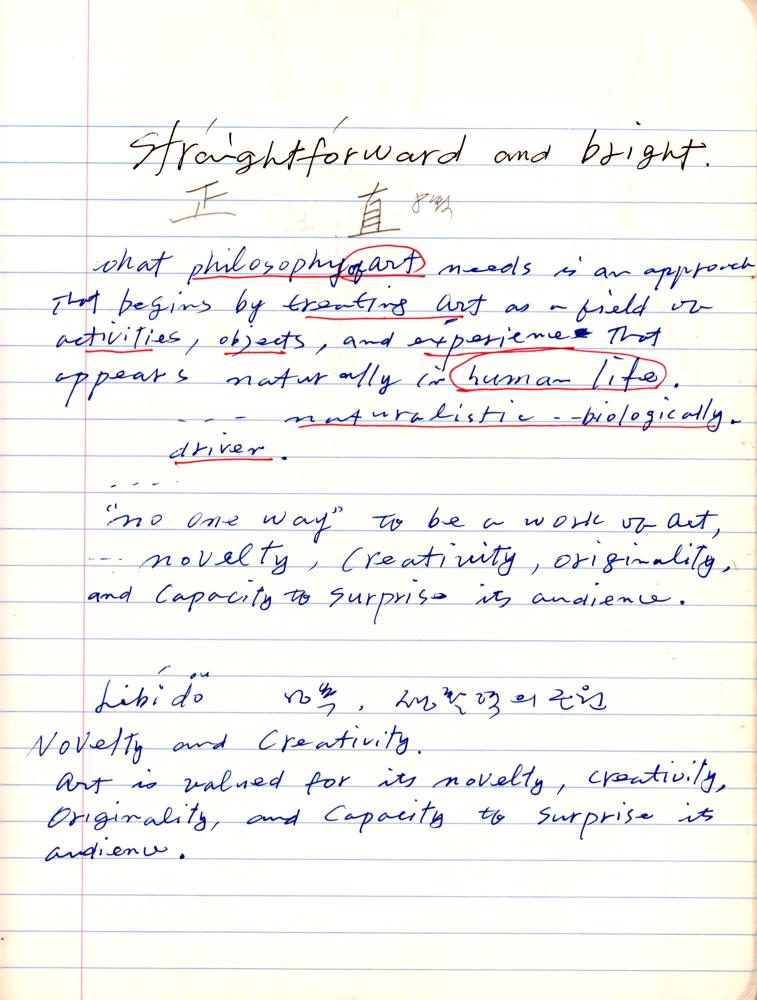 Straightforward and bright.
正 直 8획
what philosophy of art needs is an approach
that begins by treating art as a field of
activities, objects, and experience that
appears naturally in human life.
---- naturalistic --biologically.
driver.
----
"no one way" to be a work of art,
--- novelty, creativity, originality,
and capacity to surprise its audience.
Libido 의 근원
Novelty and Creativity.
Art is valued for its novelty, creativity,
Originality, and Capacity to Surprise its
audience.